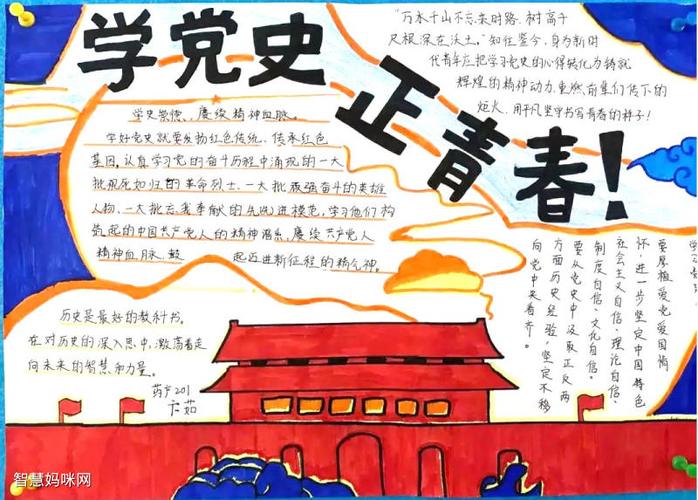 学党史
正青春!
"万水千山不忘来时路,树高千
尺根深在沃土。"知往鉴今,身为新时
代青年应把学习党史的心得转化为铸就
辉煌的精神动力,重燃前辈们传下的
炬火,用平凡坚守书写青春的样子!
学史崇德、赓续精神血脉。
学好党史就要发扬红色传统、传承红色
基因。认真学习党的奋斗历程中涌现的一大
批视死如归的革命烈士、一大批顽强奋斗的英雄
人物、一大批忘我奉献的先进模范,学习他们构
筑起的中国共产党人的精神谱系,赓续共产党人
精神血脉,鼓 起迈进新征程的精气神。
要厚植爱党爱国情
怀,进一步坚定中国特色
社会主义自信、理论自信、
制度自信、文化自信。
要从党史中汲取正反两
方面历史经验,坚定不移
向党中央看齐。
历史是最好的教科书,
在对历史的深入思中,激荡着走
向未来的智慧和力量。
药产201
卞茹
智慧妈咪网